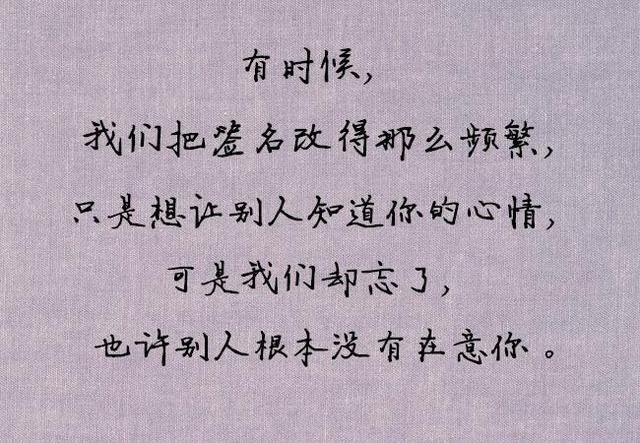 有时候，
我们把签名改得那么频繁，
只是想让别人知道你的心情，
可是我们却忘了，
也许别人根本没有在意你。